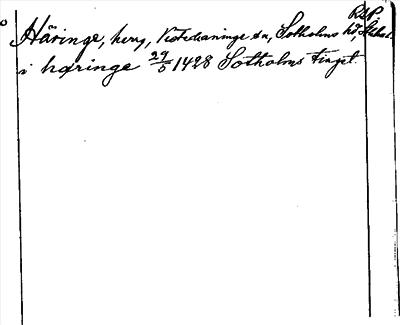 RAP.
Häringe, herg, Västerhaninge sn, Sotholms hd, Sthlm
i haringe 29/5 1428 Sotholms Tinget.